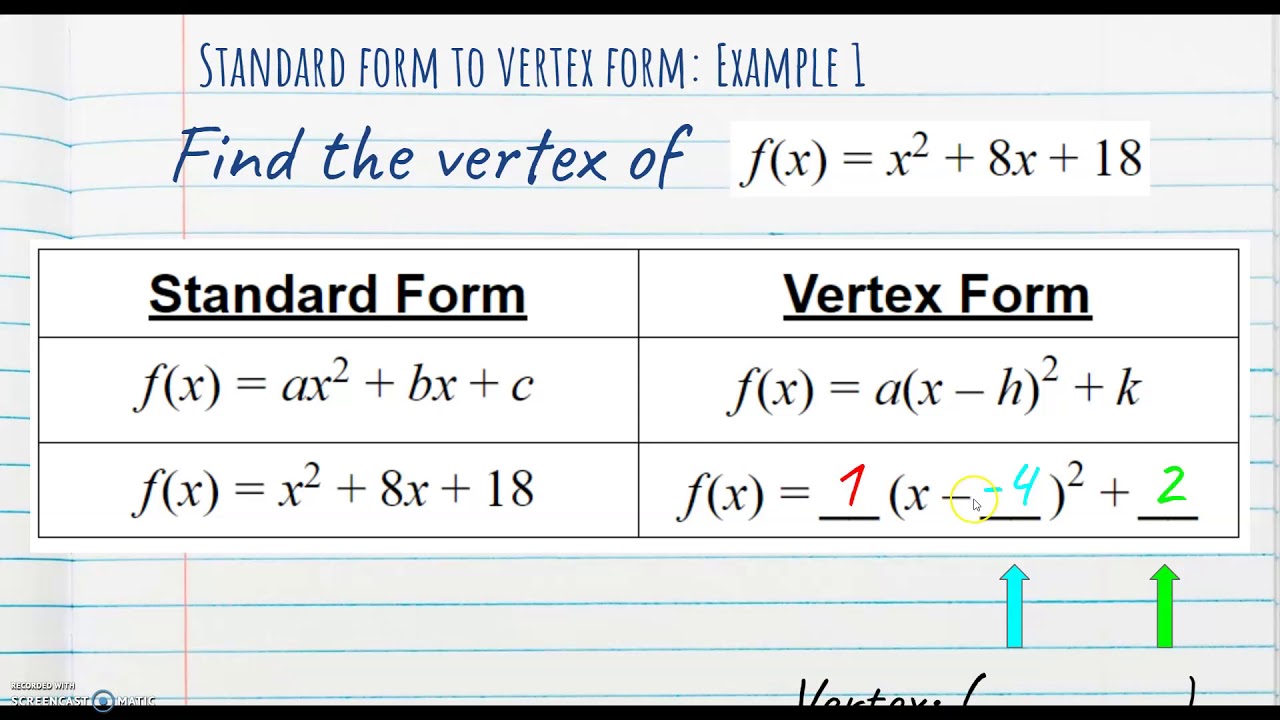 STANDARD FORM TO VERTEX FORM: EXAMPLE 1
Find the vertex of f(x) = x² + 8x + 18
Standard Form Vertex Form
f(x) = ax² + bx + c f(x) = a(x – h)² + k
f(x) = x² + 8x + 18 f(x) = 1 (x – -4 )² + 2
Vertex: ( )
RECORDED WITH
SCREENCAST MATIC